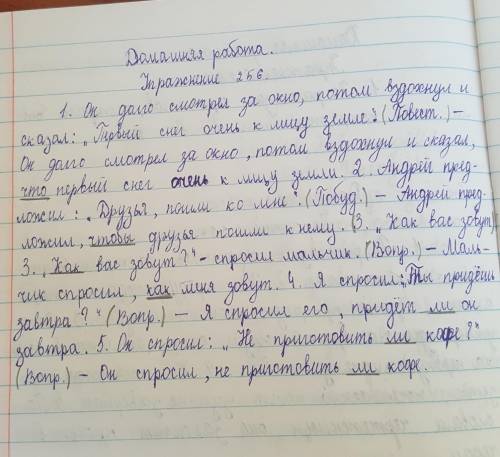 Домашняя работа.
Упражнение 256.
1. Он долго смотрел за окно, потом вздохнул и
сказал: „Первый снег очень к лицу земле". (Повест.) –
Он долго смотрел за окно, потом вздохнул и сказал,
что первый снег очень к лицу земли. 2. Андрей пред-
ложил: „Друзья, пошли ко мне". (Побуд.) – Андрей пред-
ложил, чтобы друзья пошли к нему. (3. „Как вас зовут)
3. „Как вас зовут?" – спросил мальчик. (Вопр.) – Маль-
чик спросил, как меня зовут. 4. Я спросил: „Ты придёшь
завтра?" (Вопр.) – Я спросил его, придёт ли он
завтра. 5. Он спросил: „Не приготовить ли кофе?"
(Вопр.) – Он спросил, не приготовить ли кофе.